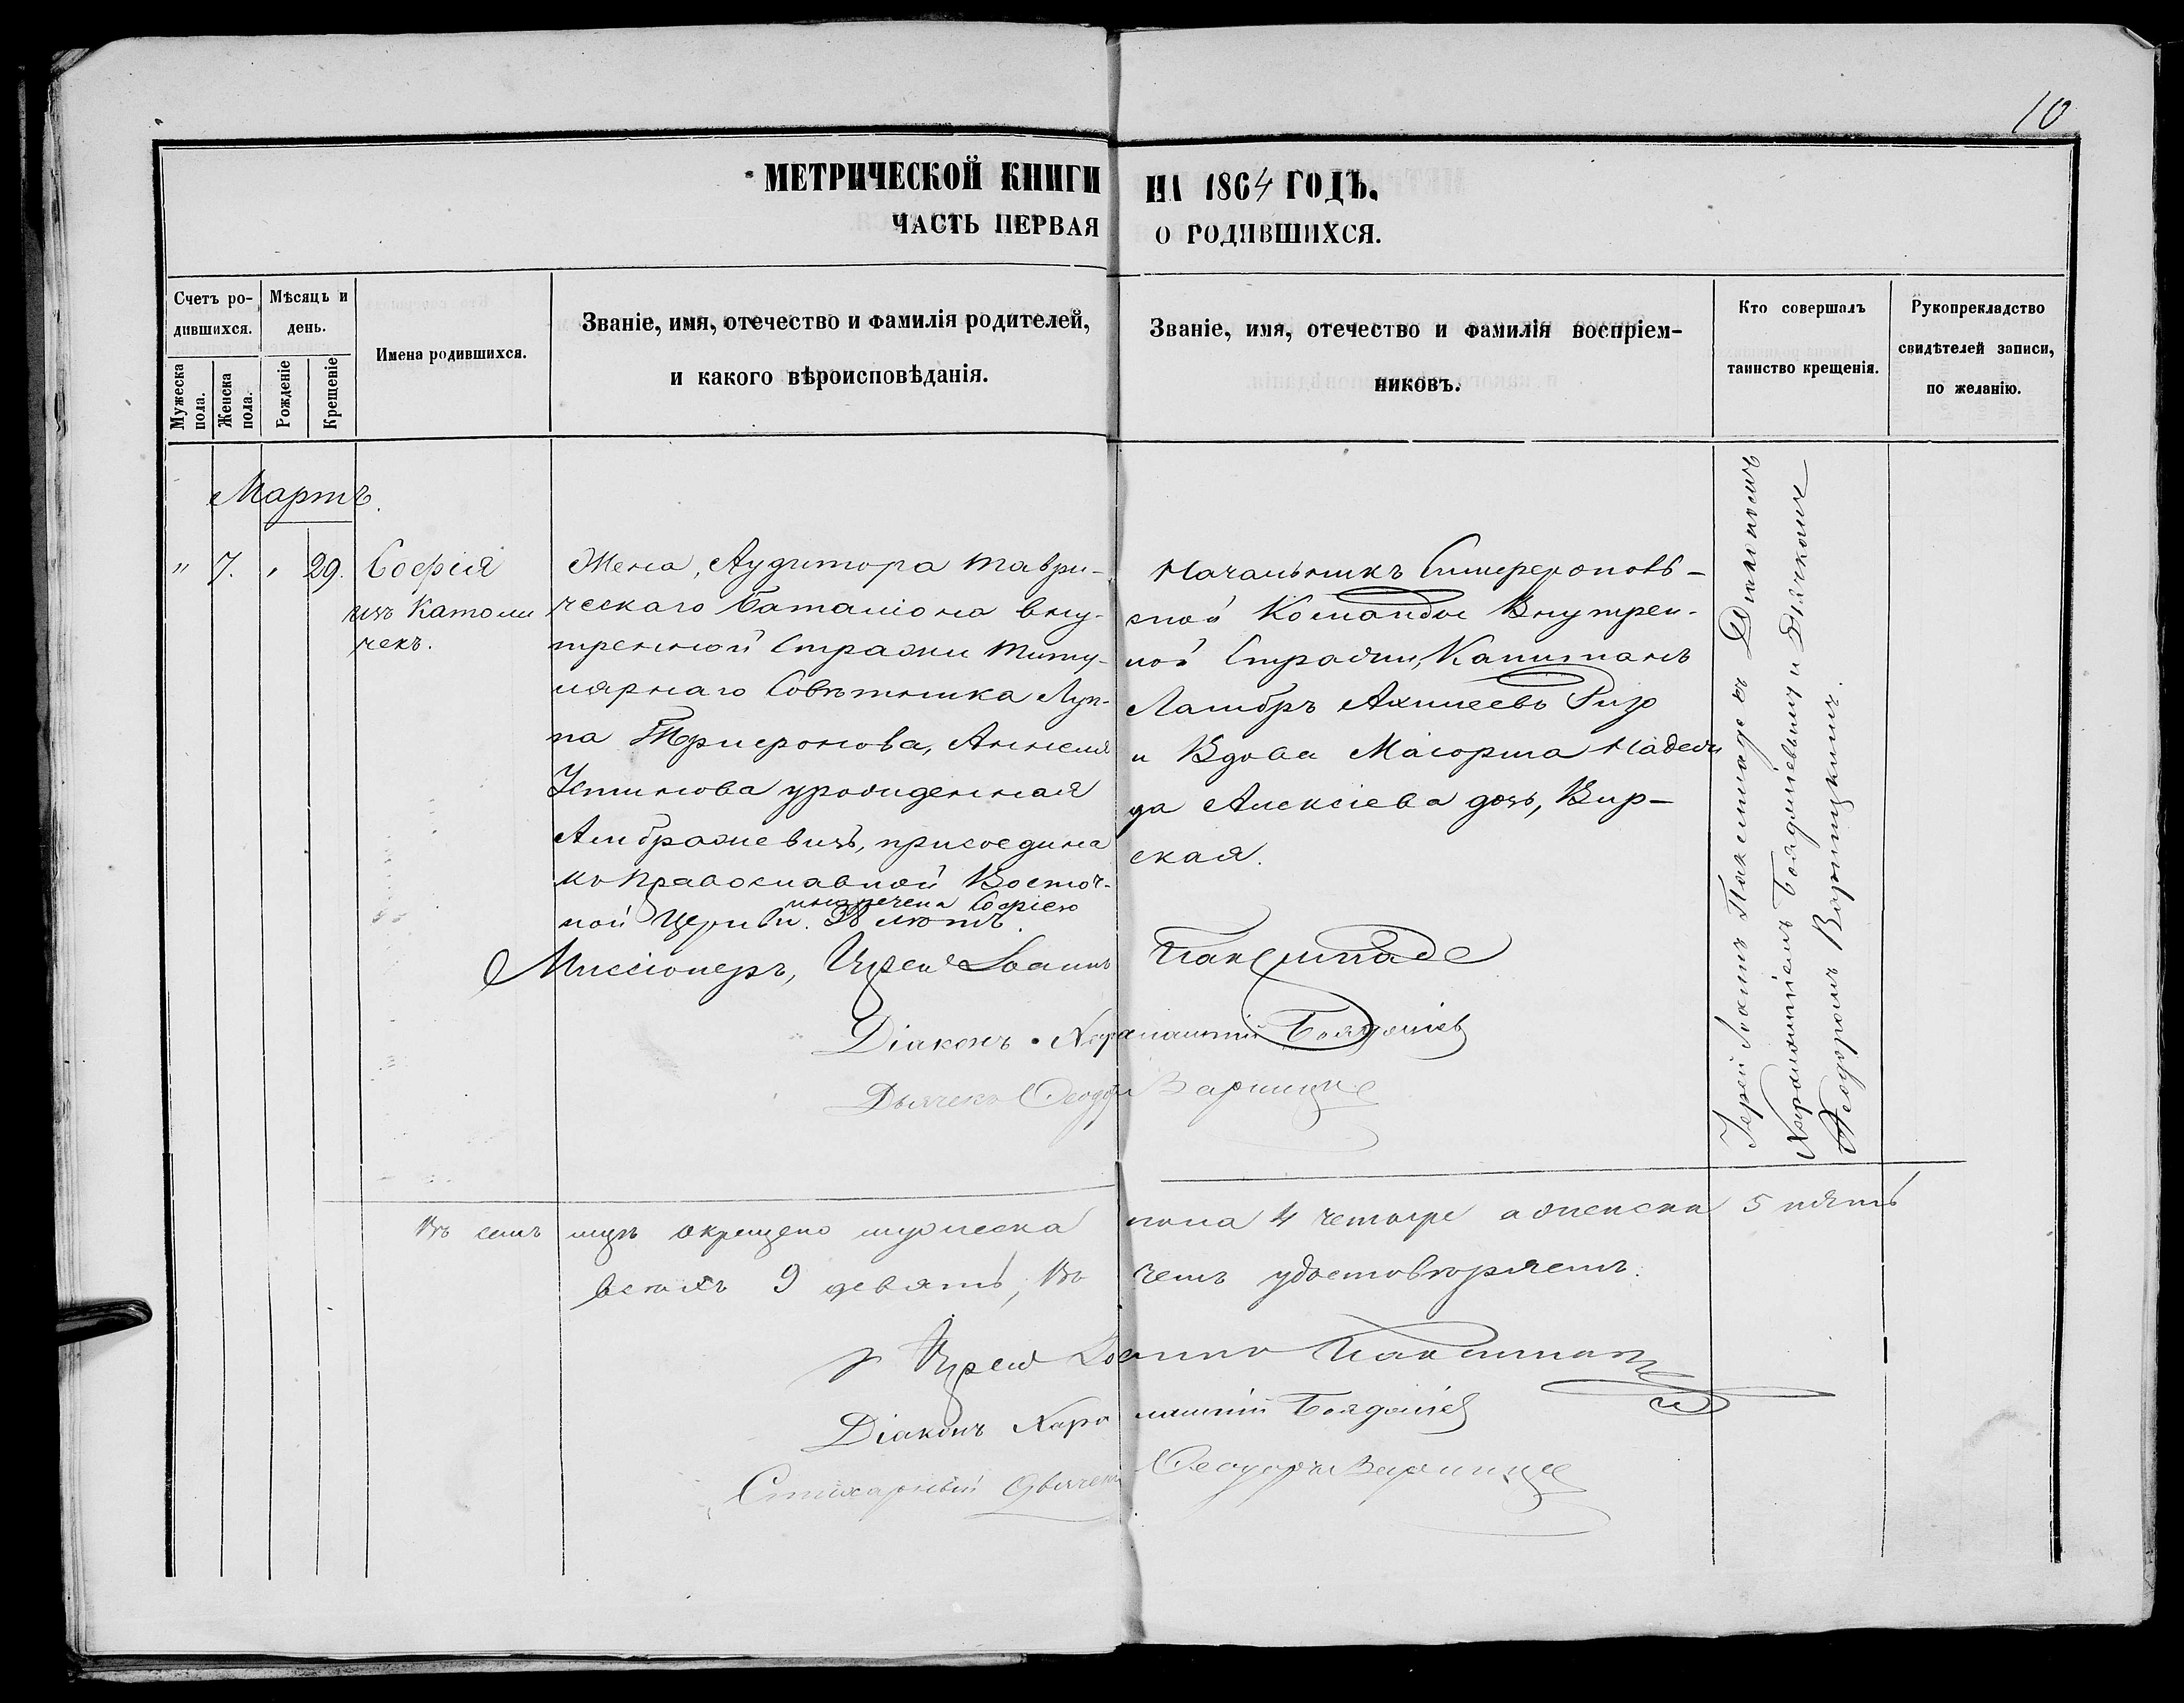 10
МЕТРИЧЕСКОЙ КНИГИ НА 1864 ГОДЪ.
ЧАСТЬ ПЕРВАЯ О РОДИВШИХСЯ.
Счетъ ро-
дившихся.
Мужеска пола.
Женска пола.
Мѣсяцъ и
день.
Рожденіе
Крещеніе
Имена родившихся.
Званіе, имя, отечество и фамилія родителей,
и какого вѣроисповѣданія.
Званіе, имя, отечество и фамилія воспріем-
никовъ.
Кто совершалъ
таинство крещенія.
Рукопрекладство
свидѣтелей записи,
по желанію.
Мартъ.
" 7. " 29.
Софія
изъ Католи
чекъ.
Жена, Аудитора Таври-
ческаго Баталіона вну-
тренной Стражи Титу-
лярнаго Совѣтника Луп-
па Трифонова,
Устинова урожденная
Амбражевичъ, присоедина
къ Православной Восточ-
и наречена Софіею
ной Церкви. 38 лѣтъ.
Начальникъ Симферополь-
ской Команды Внутрен-
ной Стражи, Капитанъ
и Вдова Маіорша Надеж
да Алексіева дочь, Вир-
ская.
Іерей Іоаннъ Паксимаде съ Діакономъ
Харлампіемъ Бояджіевымъ и Дьячкомъ
Ѳеодоромъ Варницкимъ.
Миссіонеръ, Іерей Іоаннъ Паксимаде
Діаконъ Харлампій Бояджіев
Дьячекъ Ѳеодоръ Варницкі
Въ семъ мцѣ окрещено мужеска пола 4 четыре а женска 5 пять
всѣхъ 9 девять, Въ чемъ удостовѣряемъ.
Іерей Іоаннъ Паксимаде
Діаконъ Харлампій Бояджіев
Стихарный Дьячекъ Ѳеодоръ Варницкі